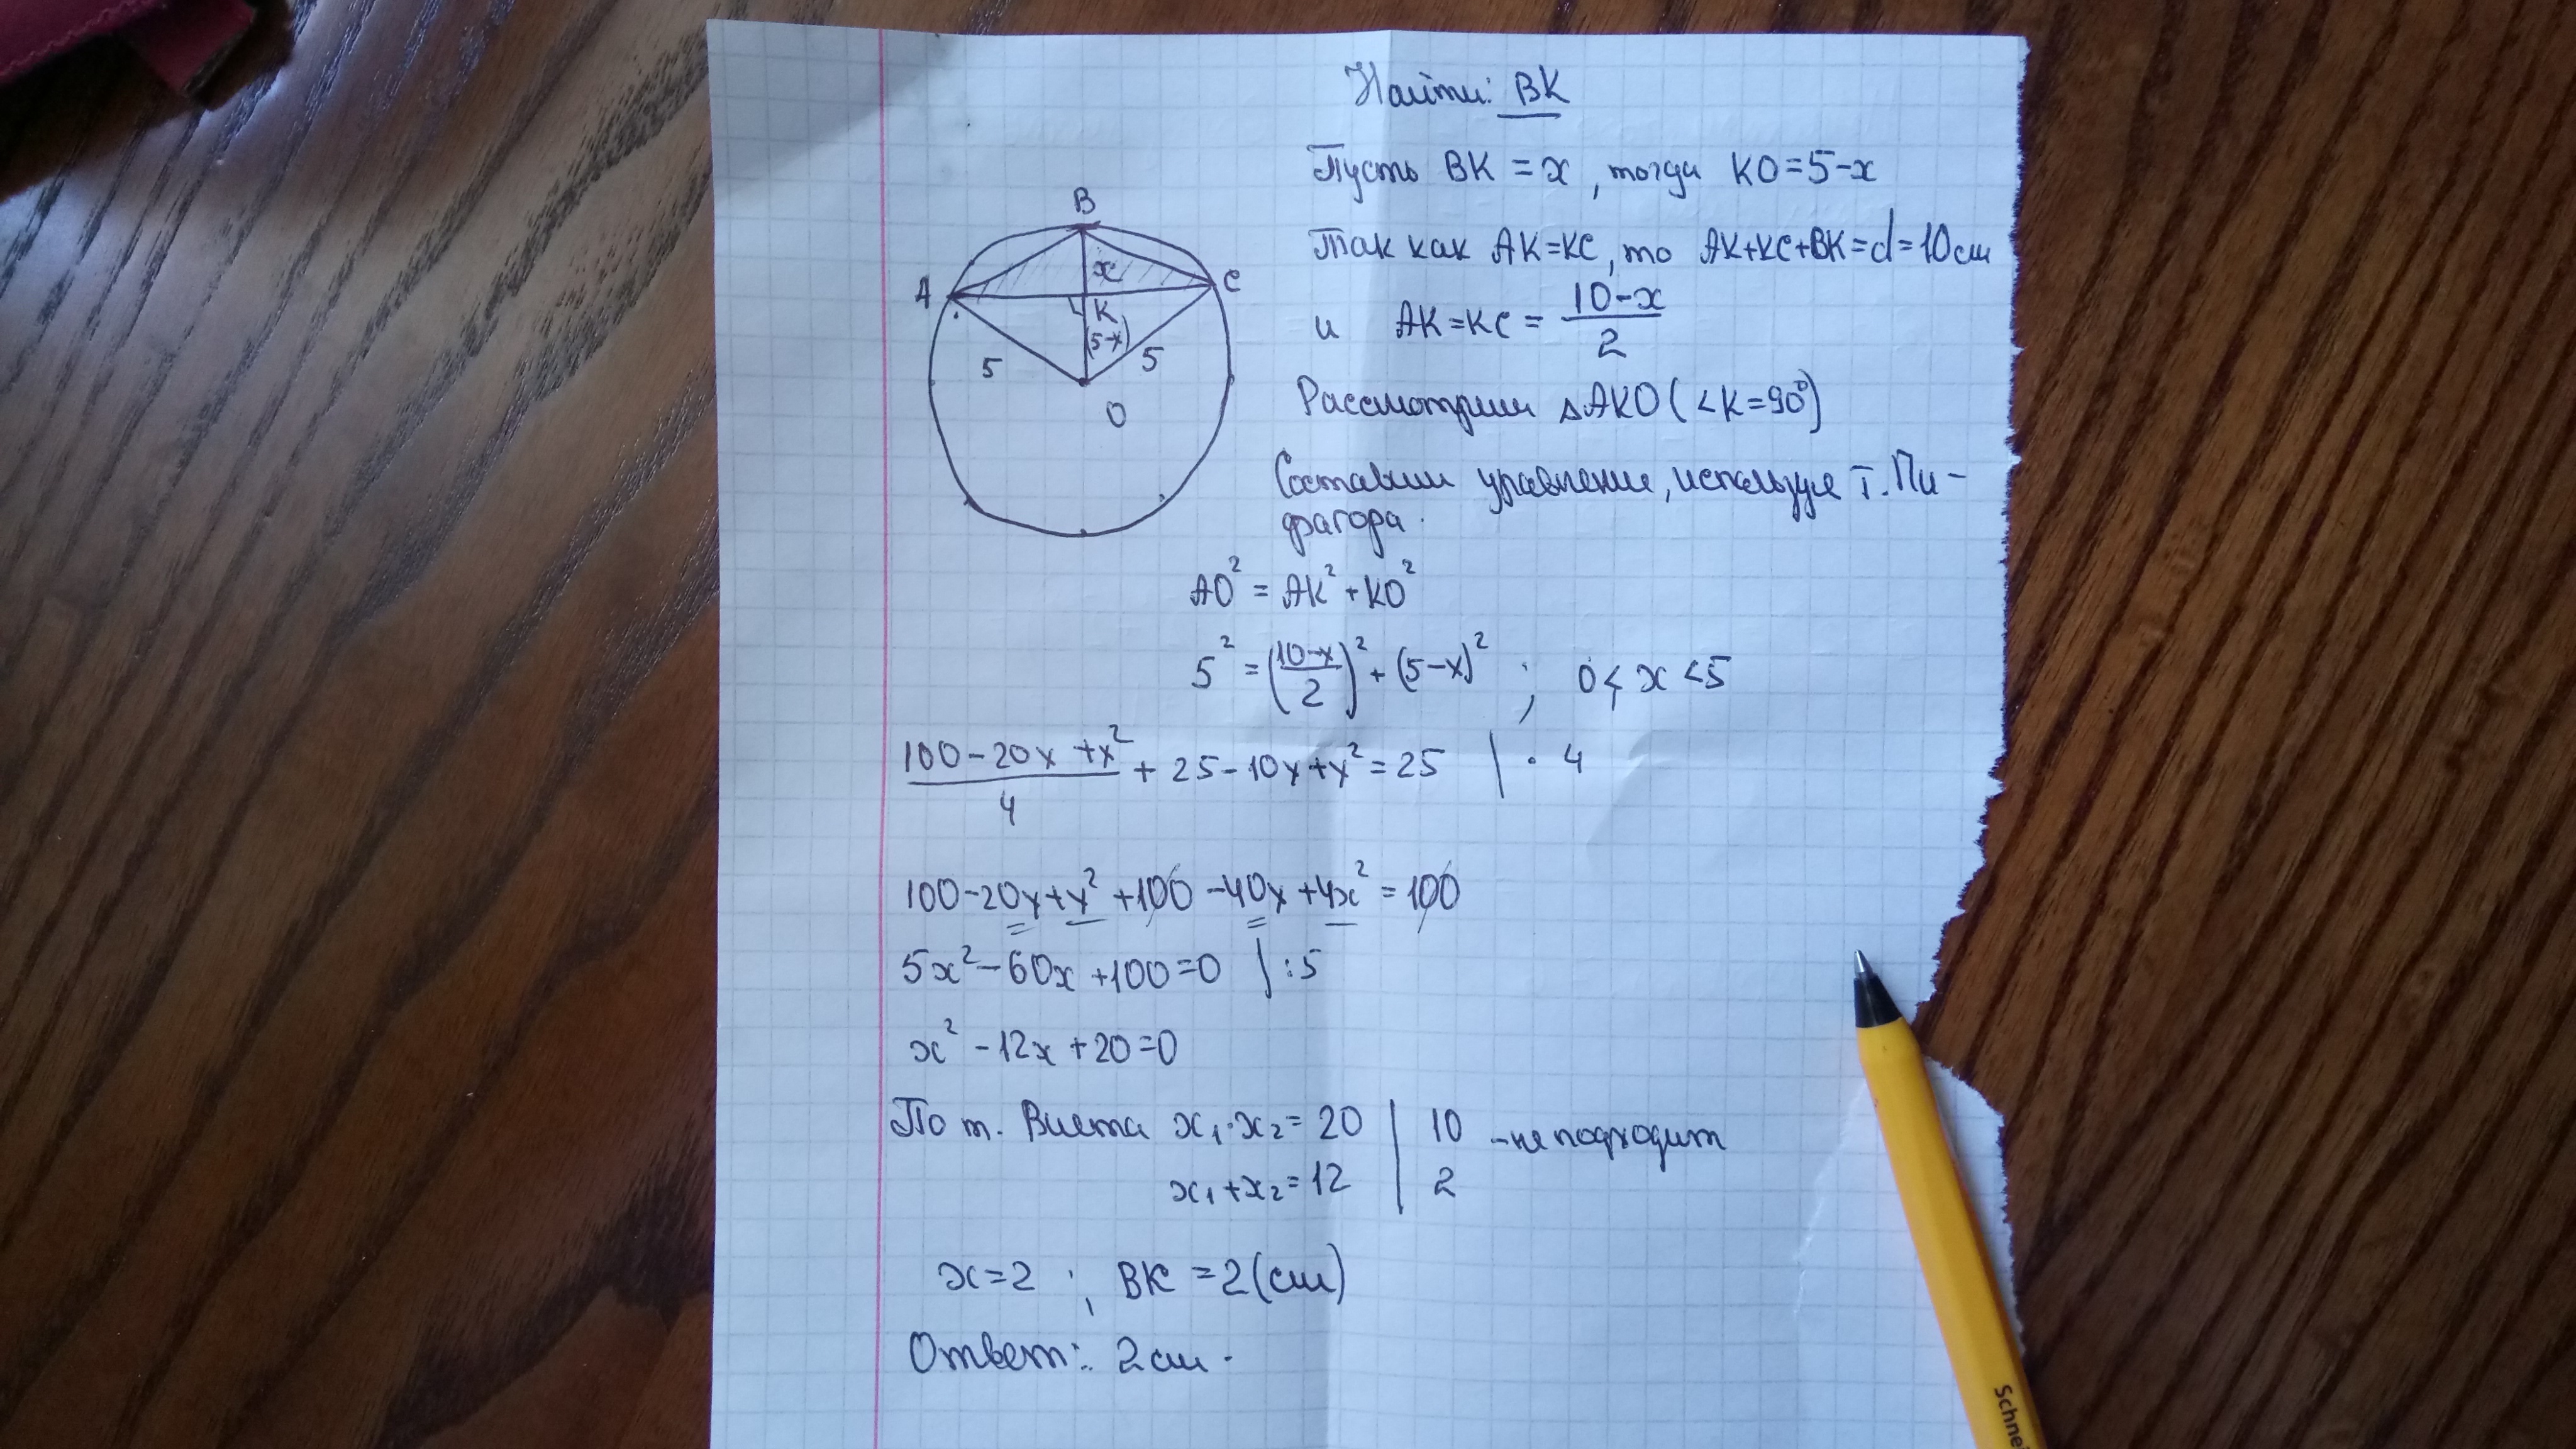 Найти: BK
Пусть BK = x, тогда KO=5-x
Так как AK=KC, то AK+KC+BK=d=10см
и AK=KC = \frac{10-x}{2}
Рассмотрим ΔAKO (∠K=90°)
Составим уравнение, используя т. Пи-
фагора.
B
A
C
x
K
(5-x)
5
5
O
AO² = AK² + KO²
5² = (\frac{10-x}{2})² + (5-x)² ; 0 < x < 5
\frac{100-20x+x²}{4} + 25-10x+x² = 25 | · 4
100-20x+x²+100-40x+4x² = 100
5x²-60x+100=0 | :5
x² -12x+20=0
По т. Виета x₁·x₂=20 | 10 - не подходит
x₁+x₂=12 | 2
x=2 ; BK = 2(см)
Ответ: 2см.
Schnei